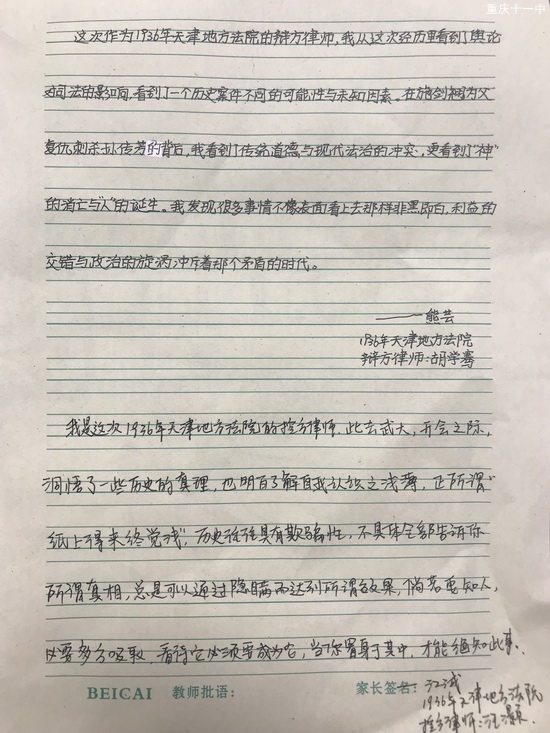 重庆十一中
这次作为1936年天津地方法院的辩方律师,我从这次经历里看到了舆论
对司法的影响,看到了一个历史案件不同的可能性与未知因素。在施剑翘为父
复仇刺杀孙传芳的背后,我看到了传统道德与现代法治的冲突,更看到了“神”
的消亡与“人”的诞生。我发现很多事情不像表面看上去那样非黑即白,利益的
交错与政治的旋涡冲斥着那个矛盾的时代。
——熊芸
1936年天津地方法院
辩方律师:胡学骞
我是这次1936年天津地方法院的控方律师,此去武大,开会之际,
洞悟了一些历史的真理,也明白了解自我认识之浅薄,正所谓“
纸上得来终觉浅”,历史往往具有欺骗性,不具体全部告诉你
所谓真相,总是可以通过隐瞒而达到所谓效果,倘若要知人,
必要多方吸取,看待它必须要成为它,当你置身于其中,才能绝知此事。
BEICAI 教师批语: 家长签名:
—江诚
1936年天津地方法院
控方律师:汪灏